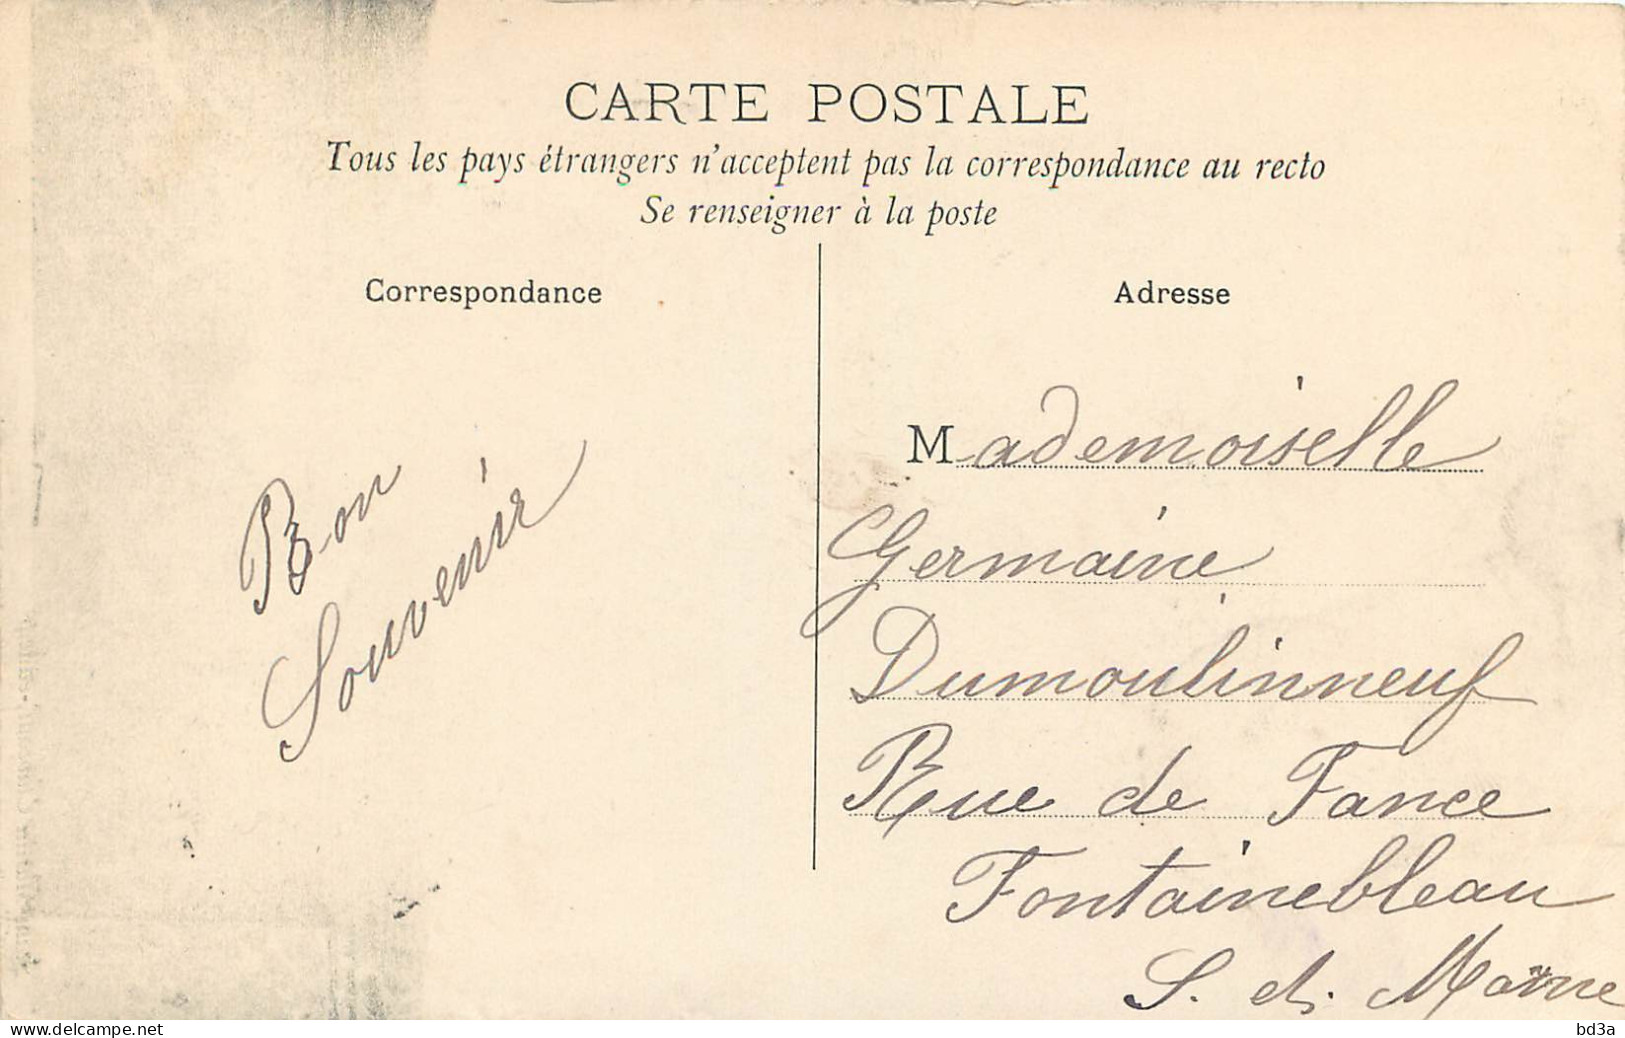 CARTE POSTALE
Tous les pays étrangers n'acceptent pas la correspondance au recto
Se renseigner à la poste
Correspondance
Bon
Souvenir
Adresse
Mademoiselle
Germaine
Dumoulinneuf
Rue de Fance
Fontainebleau
S. et. Marne
delcampe.net
bd3a